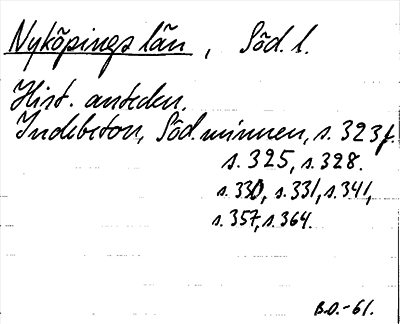 Nyköpings län, Söd. l.
Hist. anteckn.
Indebetou, Söd. minnen, s. 323f.
s. 325, s. 328.
s. 330, s. 331, s. 341,
s. 357, s. 364.
B.O.-61.